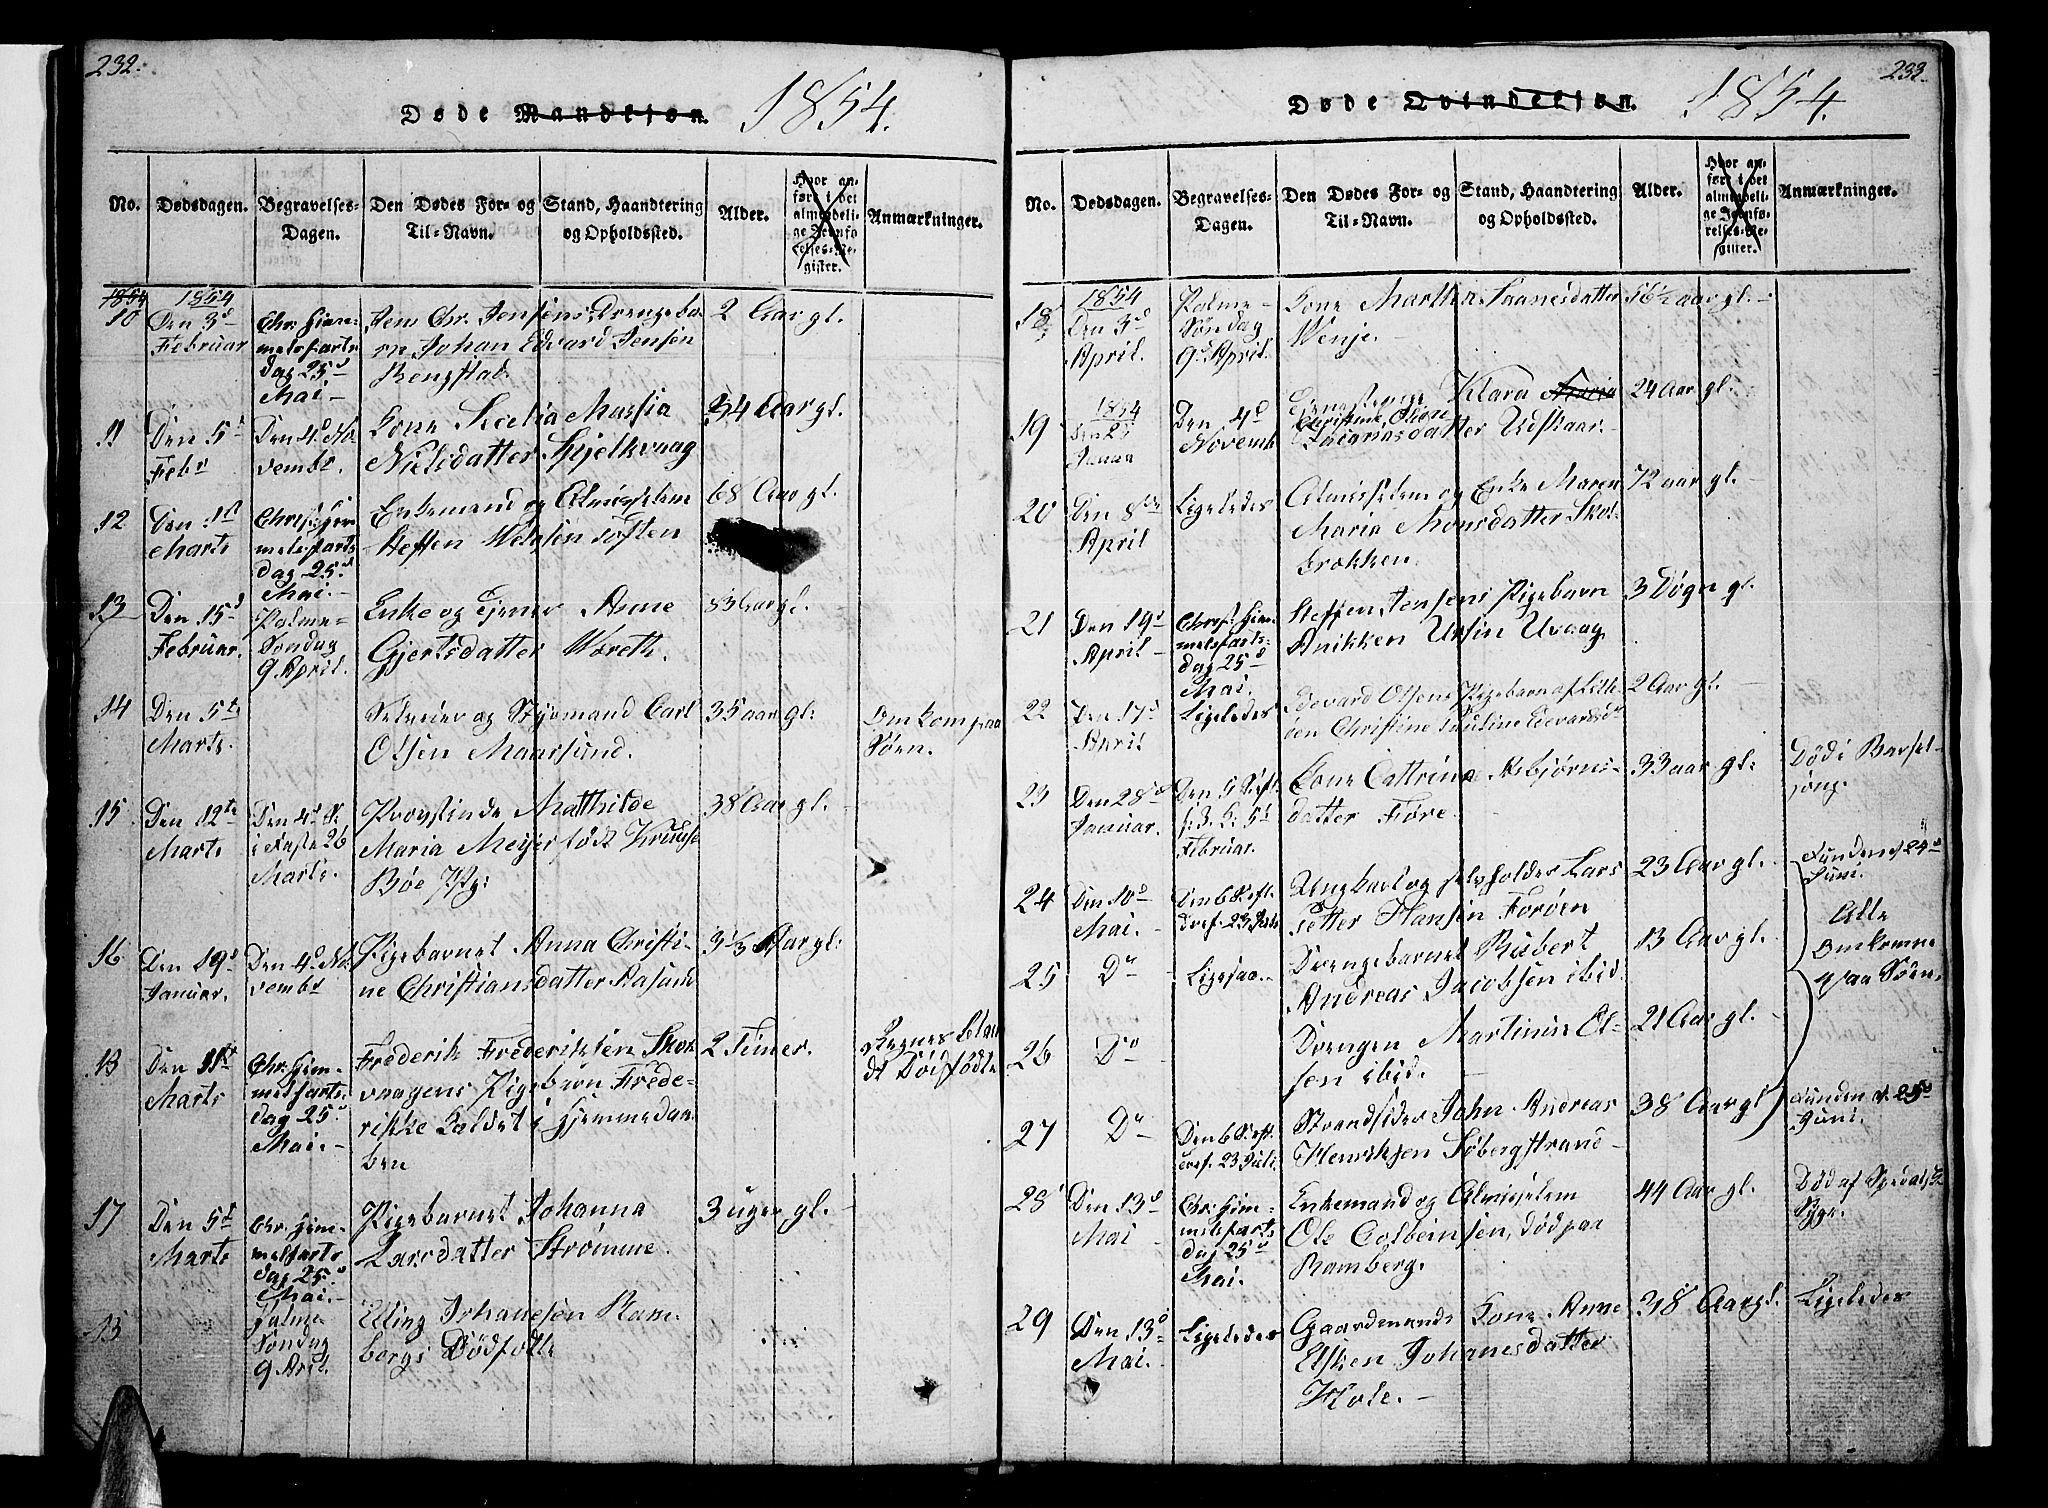 232.
Døde Mandkjøn. 1854.
No. Dødsdagen. Begravelses-Dagen. Den Dødes For- og Til-Navn. Stand, Haandtering og Opholdssted. Alder. Hvor anført i det almindelige Jevnførelses-Register. Anmærkninger.
1854 1854
10 Den 3d Februar
Chr. Himmelsfarts dag 25d Mai.
Jens Chr. Jensens Drengebarn Johan Edvard Jensen Ringstad
2 Aar gl.
11 Den 5d Febr
Den 4d November.
Kone Sicelia Massia Nielsdatter Skjelkvaag
34 Aar gl.
12 Den 1st Marts
Christ. Himmelsfarts dag 25d Mai.
Enkemand og Almisselem Steffen Nilssen Toften
68 Aar gl.
13 Den 15d Februar.
Palme-Søndag 9 April.
Enke og Anne Gjertsdatter Woreth.
83 Aar gl.
14 Den 5te Marts.
Seleier og Styrmand Carl Olsen Maarsund.
35 aar gl:
Omkom paa Søen.
15 Den 12te Marts
Den 4d S. i Faste 26 Marts.
Provstinde Matthilde Maria Meijer født Kruuse Bøe Pg:
38 Aar gl.
16 Den 19d Januar.
Den 4d November
Pigebarnet Anna Christine Christiansdatter Rasund
3 1/3 Aar gl:
13 Den 11te Marts
Chr. Himmelsfarts dag 25d Mai.
Frederik Frederiksen Skorvaagens Pigebarn Frederikke kaldet i Hjemmedaaben
2 Timer.
Regnes blandt Dødfødte
17 Den 5te Marts
Chr. Himmelsfarts dag 25d Mai.
Pigebarnet Johanna Larsdatter Strømme.
3 uger gl.
13
Palme Søndag 9 April.
Elling Johanesen Rambergs Dødfødte
233.
Døde Qvindekjøn. 1854.
No. Dødsdagen. Begravelses-Dagen. Den Dødes For- og Til-Navn. Stand, Haandtering og Opholdssted. Alder. Hvor anført i det almindelige Jevnførelses-Register. Anmærkninger.
18 1854 Den 3d April.
Palme-Søndag 9d April.
Kone Marthe Wenje.
56 1/2 aar gl.
19 1854 Januar
Den 4d Novemb
Klara Maria Christine Zacariasdatter Udskaar.
24 Aar gl.
20 Den 8de April
Ligeledes
Almisselem og Enke Maren Maria Monsdatter Skolbrokken.
72 aar gl.
21 Den 19d April
Christ. Himmelsfarts dag 25d Mai.
Steffen Jensens Pigebarn Anikken Ursin Uvaag
3 Døgn gl.
22 Den 17d April
Ligeledes
Edevard Olsens Pigebarn af Litleøen Christine Pauline Edevardsdr
2 Aar gl.
23 Den 28d Januar.
Februar.
Kone Cattrina Asbjørnsdatter Føre.
33 aar gl:
Død i Barselseng.
24 Den 10d Mai.
Den 6 S. eft. Tref. 23 Juli
Ungkarl og selvholder Lars Petter Hansen Forøen
23 Aar gl.
Funden d 24d Juni.
25 Do
Ligesaa.
Drengebarnet Rubert Andreas Jacobsen ibid.
13 Aar gl.
Alle Omkomne paa Søen.
26 Do
Drengen Martinus Olsen ibid.
21 Aar gl.
27 Do
Den 6 S. eft. Tref. 23 Juli
Strandsider John Andreas Henriksen Søbergstrand
38 Aar gl
Funden d. 25d Juni.
28 Den 13d Mai
Chr. Himmelsfarts dag 25d Mai.
Enkemand og Almisselem Ole Colbeinsen, død paa Ramberg.
44 Aar gl.
Død af Spedalsk Syge.
29 Den 13d Mai.
Ligeledes
Gaardmands Kone Anne Elsken Johanesdatter Hole.
38 Aar gl.
Ligeledes